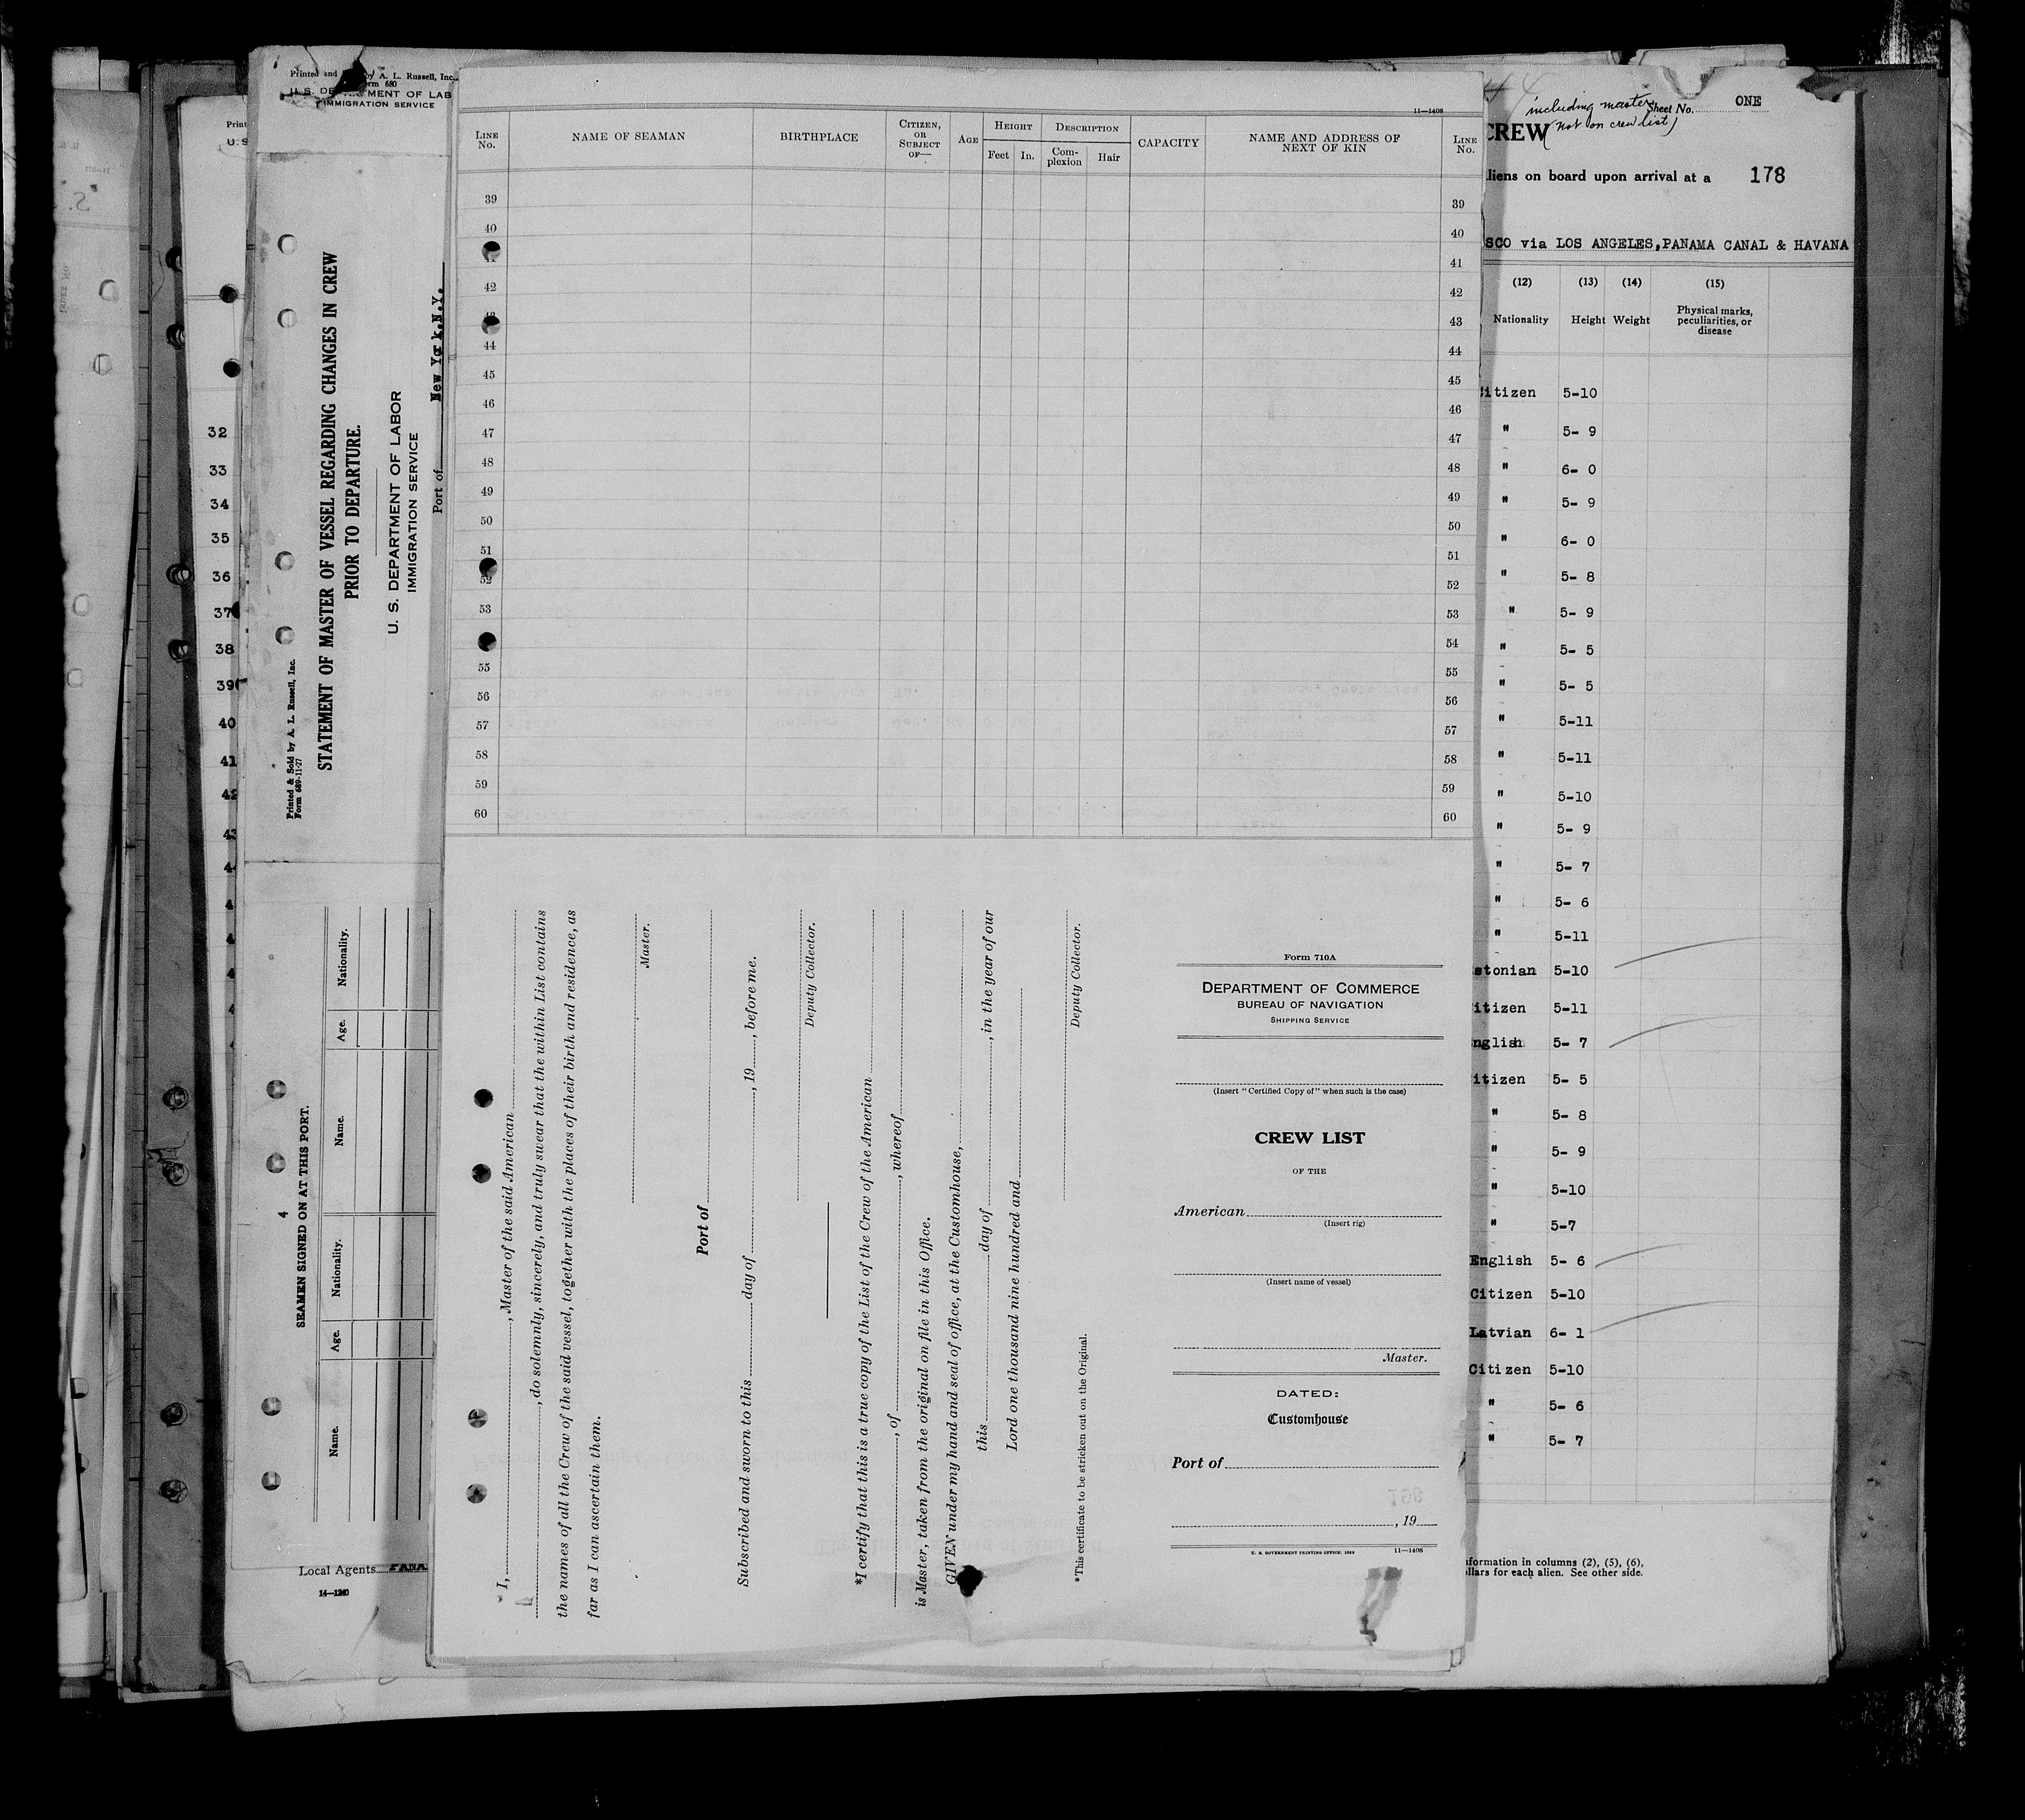 Printed and by A. L. Russell, Inc.
Form 680
U. S. DEPARTMENT OF LAB
IMMIGRATION SERVICE
32
33
34
35
36
37
38
39
40
41
42
43
Printed & Sold by A. L. Russell, Inc.
Form 689-11-27
STATEMENT OF MASTER OF VESSEL REGARDING CHANGES IN CREW
PRIOR TO DEPARTURE.
U. S. DEPARTMENT OF LABOR
IMMIGRATION SERVICE
Port of New York.N.Y.
4
SEAMEN SIGNED ON AT THIS PORT.
Name. Age. Nationality. Name. Age. Nationality.
Local Agents PANA
14—1240
11—1408
LINE No. NAME OF SEAMAN BIRTHPLACE CITIZEN, OR SUBJECT OF— AGE HEIGHT Feet In. DESCRIPTION Complexion Hair CAPACITY NAME AND ADDRESS OF NEXT OF KIN LINE No.
39 39
40 40
41 41
42 42
43 43
44 44
45 45
46 46
47 47
48 48
49 49
50 50
51 51
52 52
53 53
54
55 55
56 56
57 57
58 58
59 59
60 60
I, , Master of the said American
, do solemnly, sincerely, and truly swear that the within List contains
the names of all the Crew of the said vessel, together with the places of their birth and residence, as
far as I can ascertain them.
Master.
Port of
Subscribed and sworn to this day of , 19 , before me.
Deputy Collector.
*I certify that this is a true copy of the List of the Crew of the American
, of , whereof
is Master, taken from the original on file in this Office.
GIVEN under my hand and seal of office, at the Customhouse,
this day of , in the year of our
Lord one thousand nine hundred and
Deputy Collector.
*This certificate to be stricken out on the Original.
Form 710A
DEPARTMENT OF COMMERCE
BUREAU OF NAVIGATION
SHIPPING SERVICE
(Insert "Certified Copy of" when such is the case)
CREW LIST
OF THE
American
(Insert rig)
(Insert name of vessel)
Master.
DATED:
Customhouse
Port of
, 19
U. S. GOVERNMENT PRINTING OFFICE: 11—1408
including master
Sheet No. ONE
CREW not on crew list)
liens on board upon arrival at a 178
SCO via LOS ANGELES,PANAMA CANAL & HAVANA
(12) (13) (14) (15)
Nationality Height Weight Physical marks, peculiarities, or disease
itizen 5-10
" 5- 9
" 6- 0
" 5- 9
" 6- 0
" 5- 8
" 5- 9
" 5- 5
" 5- 5
" 5-11
" 5-11
" 5-10
" 5- 9
" 5- 7
" 5- 6
" 5-11
stonian 5-10
itizen 5-11
nglish 5- 7
itizen 5- 5
" 5- 8
" 5- 9
" 5-10
" 5-7
English 5- 6
Citizen 5-10
Latvian 6- 1
Citizen 5-10
" 5- 6
" 5- 7
formation in columns (2), (5), (6),
llars for each alien. See other side.